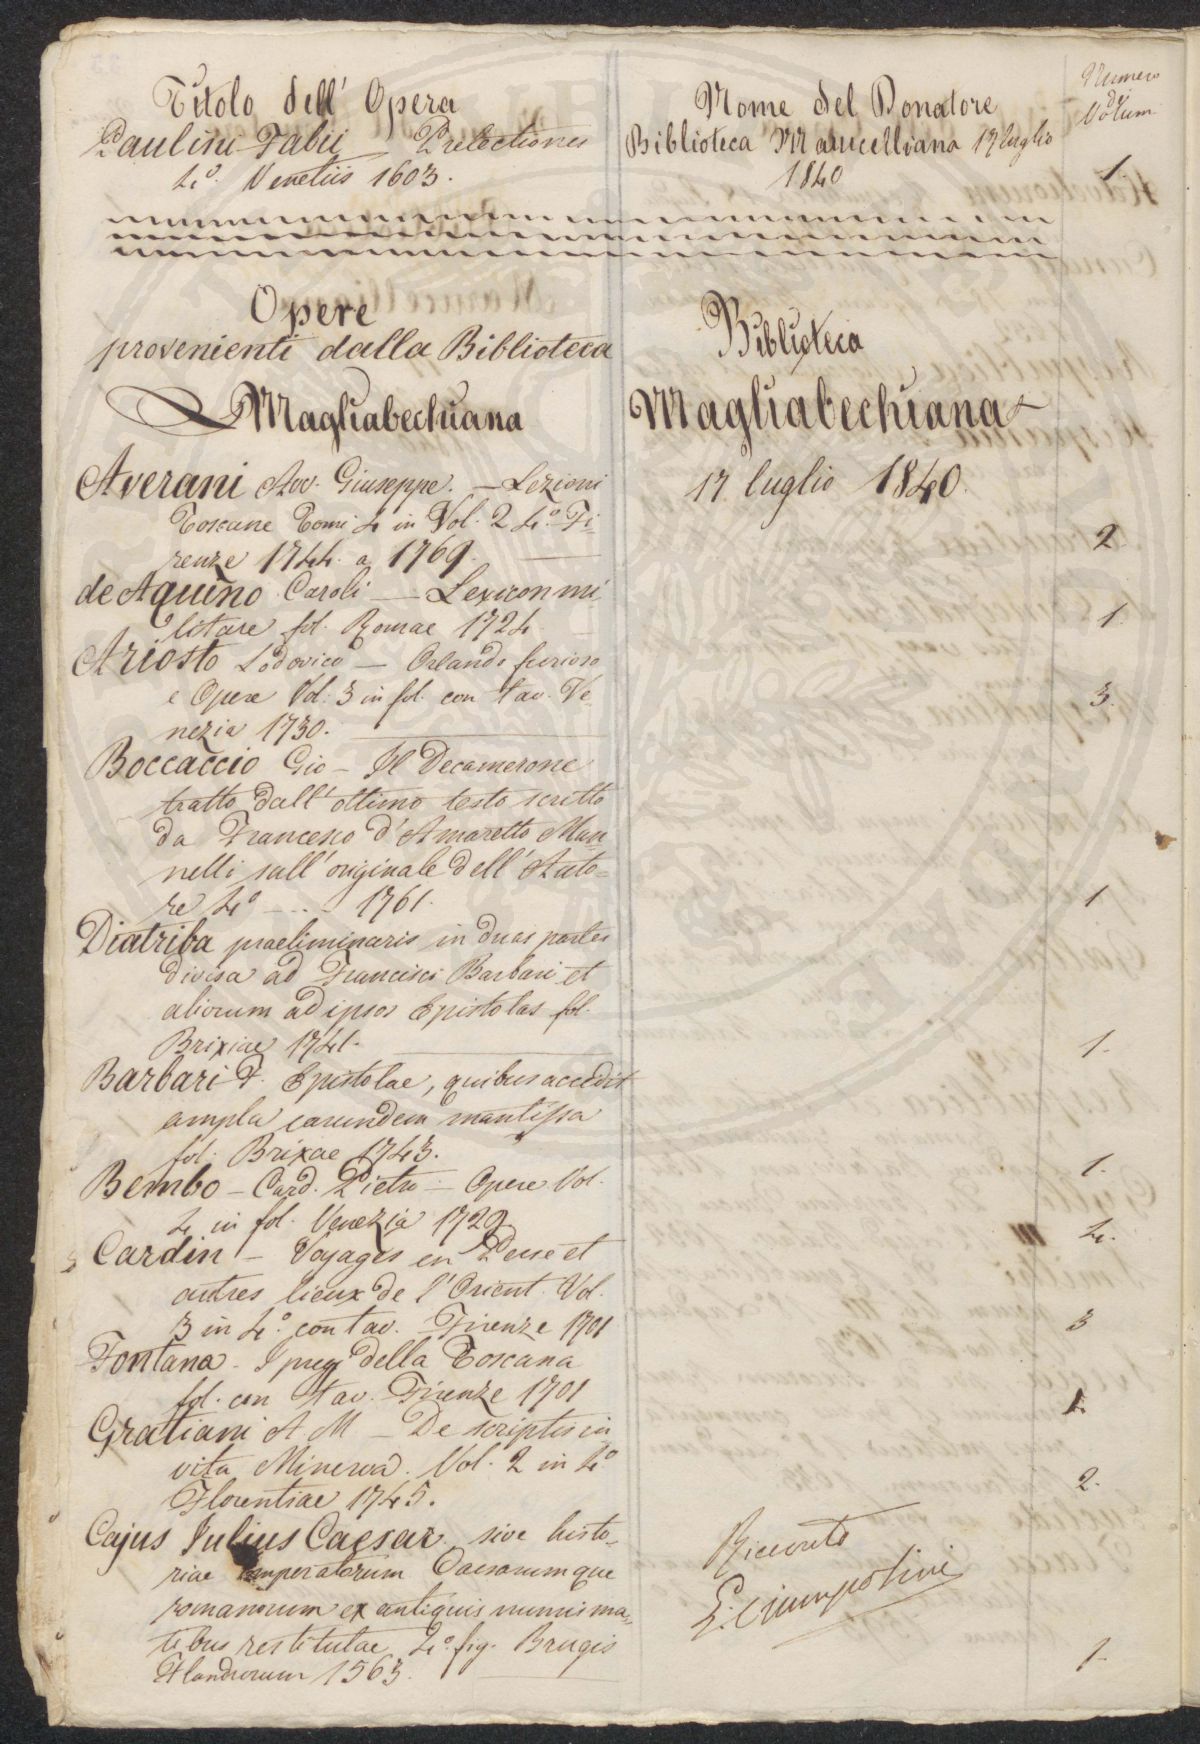 Titolo dell' Opera
Nome del Donatore
Numero
di
Volumi
Paulini Fabii Prelectiones
4.° Venetiis 1603.
Biblioteca Marucelliana 17 luglio
1840
1.
Opere
provenienti dalla Biblioteca
Magliabechiana
Biblioteca
Magliabechiana
17 luglio 1840.
Averani Avv. Giuseppe. — Lezioni
Toscane Tomi 4 in Vol. 2 4.° Fi=
renze 1744. a 1769.
2
de Aquino Caroli — Lexicon mi
litare fol. Romae 1724
1.
Ariosto Lodovico — Orlando furioso
e Opere Vol. 3 in fol. con tav. Ve=
nezia 1730.
3.
Boccaccio Gio — Il Decamerone
tratto dall' ottimo testo scritto
da Francesco d'Amaretto Man
nelli sull' originale dell' Auto=
re 4° --- 1761.
1
Diatriba praeliminaris in duas partes
divisa ad Francisci Barbari et
aliorum ad ipsos Epistolas fol.
Brixiae 1741.
1.
Barbari F. Epistolae, quibus accedit
ampla earundem mantissa
fol. Brixae 1743.
1.
Bembo — Card. Pietro — Opere Vol.
4 in fol. Venezia 1729
4.
Cardin — Voyages en Perse et
autres lieux de l'Orient. Vol.
3 in 4.° con tav. Firenze 1701
3
Fontana. I pregi della Toscana
fol. con tav. Firenze 1701
1.
Gratiani A M — De scriptis in
vita Minerva. Vol. 2 in 4°
Florentiae 1745.
2.
Cajus Julius Caesar sive histo=
riae imperatorum Caesarumque
romanorum ex antiquis numisma=
tibus restitutae 4° fig. Brugis
Flandrorum 1563.
1.
Ricevuto